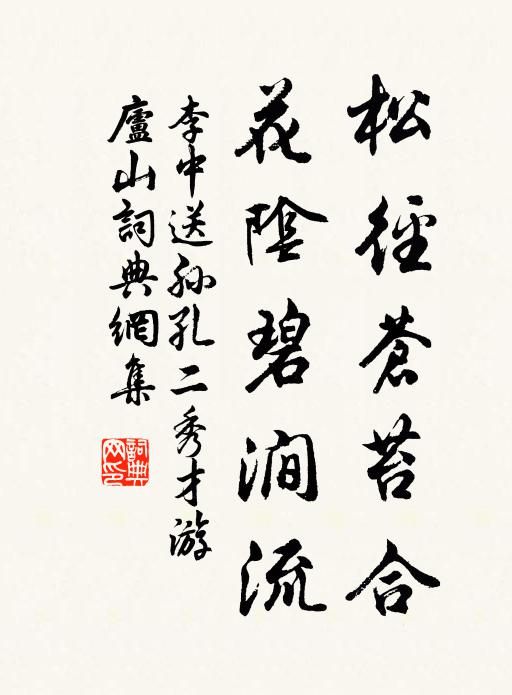 松徑蒼苔合
花陰碧澗流
李中送孫孔二秀才游
廬山詞典網集
詞典網印